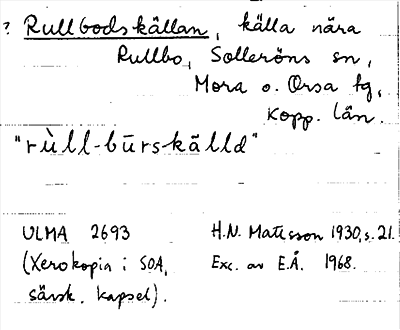 ? Rullbodskällan, källa nära
Rullbo, Solleröns sn,
Mora o. Orsa tg,
Kopp. län.
"rùll-būrskälld"
ULMA 2693 H.N. Matsson 1930, s. 21.
(Xerokopia i SOA, Exc. av E.Å. 1968.
särsk. kapsel).